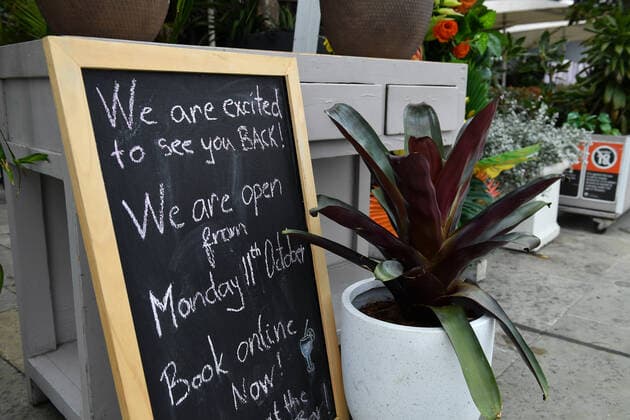 We are excited
to see you BACK!
We are open
from
Monday 11th October
Book online
Now!
at the Bar!
18